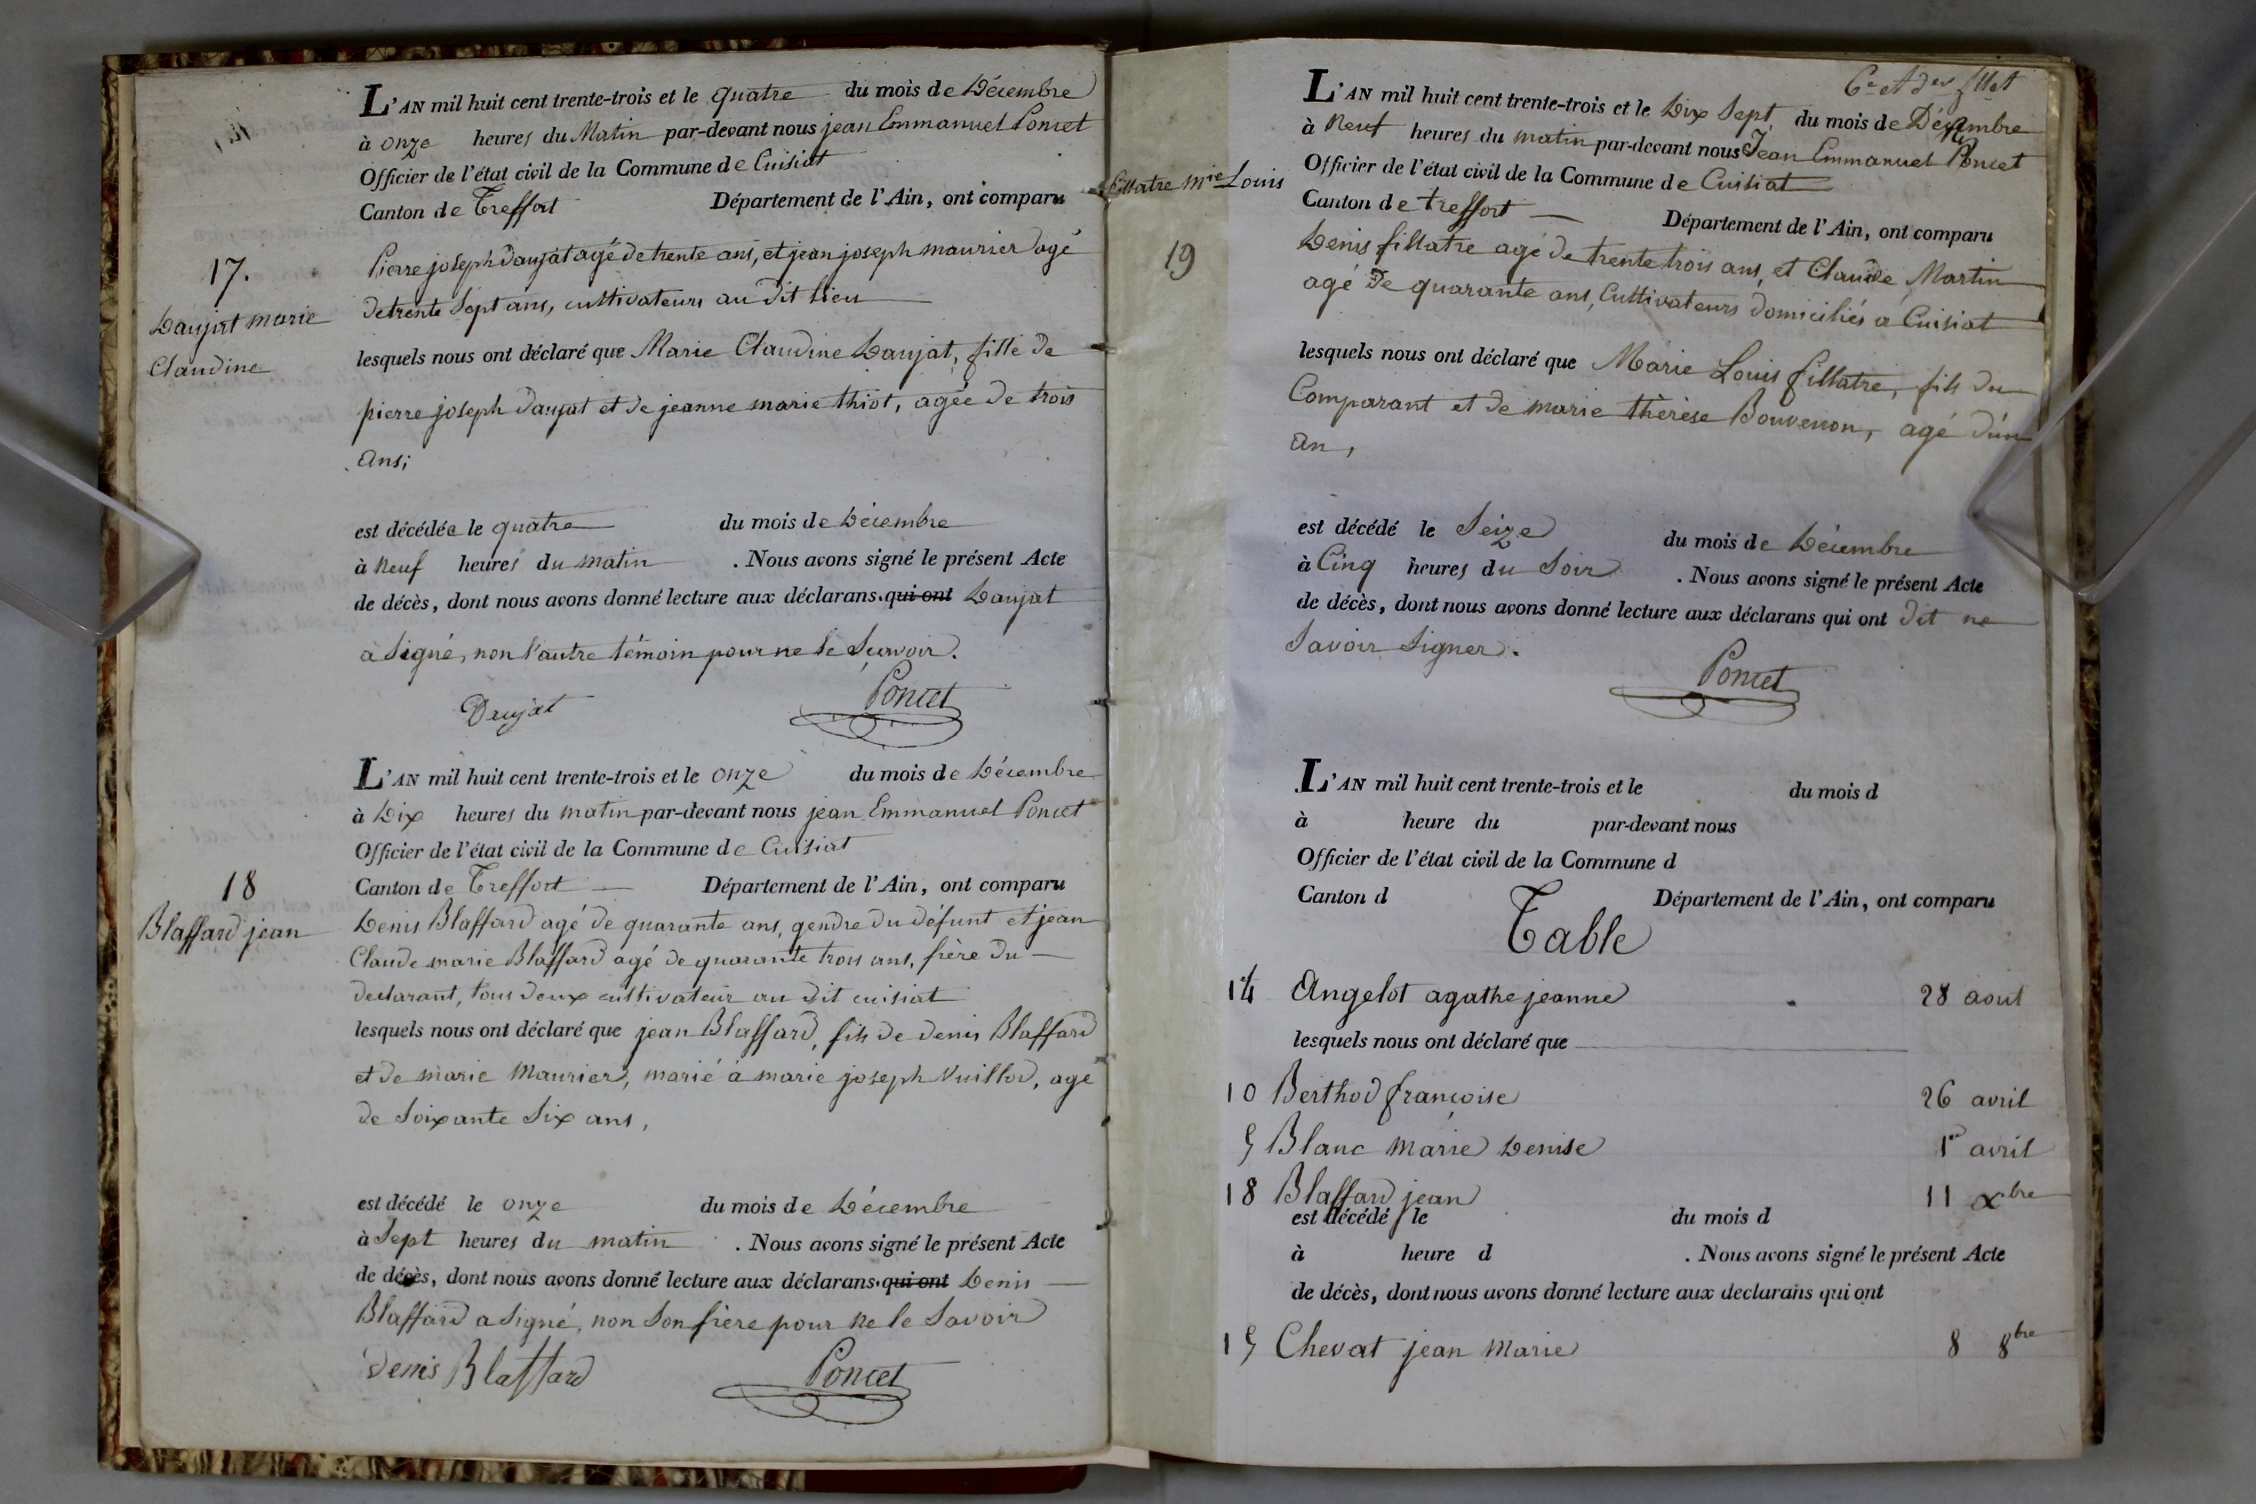 L'AN mil huit cent trente-trois et le quatre du mois de Décembre
à onze heures du Matin par-devant nous jean Emmanuel Poncet
Officier de l'état civil de la Commune de Cuisiat
Canton de Treffort Département de l'Ain, ont comparu
17.
Daujat marie
Claudine
Pierre joseph daujat agé de trente ans, et jean joseph maurier agé
de trente sept ans, cultivateurs au dit lieu
lesquels nous ont déclaré que Marie Claudine Daujat, fille de
pierre joseph daujat et de jeanne marie thiot, agée de trois
ans;
est décédée le quatre du mois de Décembre
à neuf heures du matin . Nous avons signé le présent Acte
de décès, dont nous avons donné lecture aux déclarans qui ont Daujat
a signé, non l'autre témoin pour ne le scavoir.
Daujat Poncet
L'AN mil huit cent trente-trois et le onze du mois de Décembre
à Dix heures du matin par-devant nous jean Emmanuel Poncet
Officier de l'état civil de la Commune de Cuisiat
Canton de Treffort Département de l'Ain, ont comparu
18
Blaffard jean
Denis Blaffard agé de quarante ans, gendre du défunt et jean
Claude marie Blaffard agé de quarante trois ans, frère du
declarant, tous deux cultivateur au dit cuisiat
lesquels nous ont déclaré que jean Blaffard, fils de denis Blaffard
et de marie Maurier, marié à marie joseph Vuillod, age
de soixante six ans,
est décédé le onze du mois de Décembre
à sept heures du matin . Nous avons signé le présent Acte
de décès, dont nous avons donné lecture aux déclarans qui ont Denis
Blaffard a signé, non son frère pour ne le savoir
denis Blaffard Poncet
6e et der
L'AN mil huit cent trente-trois et le Dix sept du mois de Décembre
à neuf heures du matin par-devant nous Jean Emmanuel Poncet
Officier de l'état civil de la Commune de Cuisiat
Canton de treffort Département de l'Ain, ont comparu
fillatre mie Louis
19
Denis fillatre agé de trente trois ans, et Claude Martin
agé de quarante ans, Cultivateurs domiciliés à Cuisiat
lesquels nous ont déclaré que Marie Louis fillatre, fils du
Comparant et de marie thérèse Bouvenon, agé d'un
an,
est décédé le seize du mois de Décembre
à Cinq heures du soir . Nous avons signé le présent Acte
de décès, dont nous avons donné lecture aux déclarans qui ont dit ne
savoir signer.
Poncet
L'AN mil huit cent trente-trois et le du mois d
à heure du par-devant nous
Officier de l'état civil de la Commune d
Canton d Département de l'Ain, ont comparu
Table
14 Angelot agathe jeanne 28 aout
lesquels nous ont déclaré que
10 Berthod françoise 26 avril
9 Blanc Marie Denise 1er avril
18 Blaffard jean 11 xbre
est décédé le du mois d
à heure d . Nous avons signé le présent Acte
de décès, dont nous avons donné lecture aux declarans qui ont
15 Chevat jean Marie 8 8bre